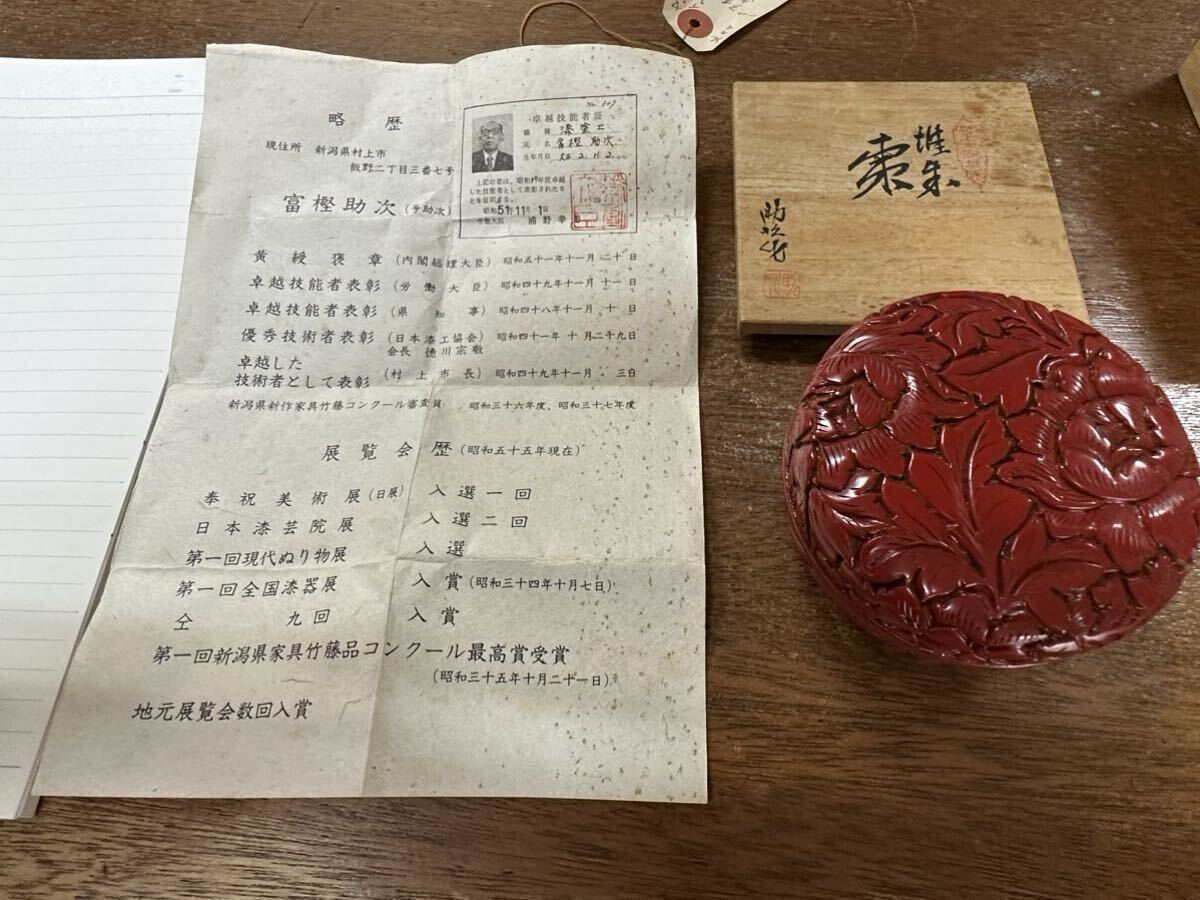 略歴
現住所 新潟県村上市
飯野二丁目三番七号
富樫助次 (号助次)
No. 107
卓越技能者証
職種 漆塗工
氏名 富樫助次
生年月日
上記の者は、昭和49年度卓越
した技術者として表彰されたこ
とを証明する。
昭和51年11月1日
労働大臣 浦野幸男
黄綬褒章 (内閣総理大臣) 昭和五十一年十一月二十日
卓越技能者表彰 (労働大臣) 昭和四十九年十一月十一日
卓越技能者表彰 (県知事) 昭和四十八年十一月十日
優秀技術者表彰 (日本漆工協会) 昭和四十一年十月二十九日
会長 徳川宗敬
卓越した
技術者として表彰 (村上市長) 昭和四十九年十一月三日
新潟県新作家具竹藤コンクール審査員 昭和三十六年度、昭和三十七年度
展覧会歴 (昭和五十五年現在)
奉祝美術展 (日展) 入選一回
日本漆芸院展 入選二回
第一回現代ぬり物展 入選
第一回全国漆器展 入賞 (昭和三十四年十月七日)
仝 九回 入賞
第一回新潟県家具竹藤品コンクール最高賞受賞
(昭和三十五年十月二十一日)
地元展覧会数回入賞
堆朱
棗
助次作